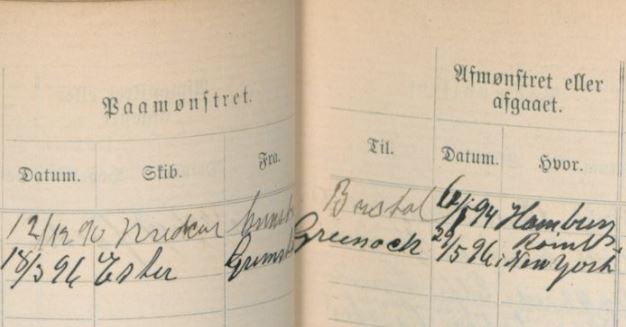 Paamønstret.
Afmønstret eller
afgaaet.
Datum. Skib. Fra. Til. Datum. Hvor.
12/12 90 Bristol 94 Hamburg
18/3 96 Ester Greenock 29/5 96 New York